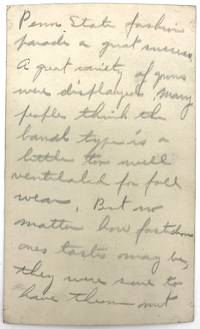 Penn State fashion
parade a great success.
A great variety of gowns
were displayed. Many
people think the
band type is a
little too well
ventilated for fall
wear. But no
matter how
ones tastes may be,
they were sure to
have them met